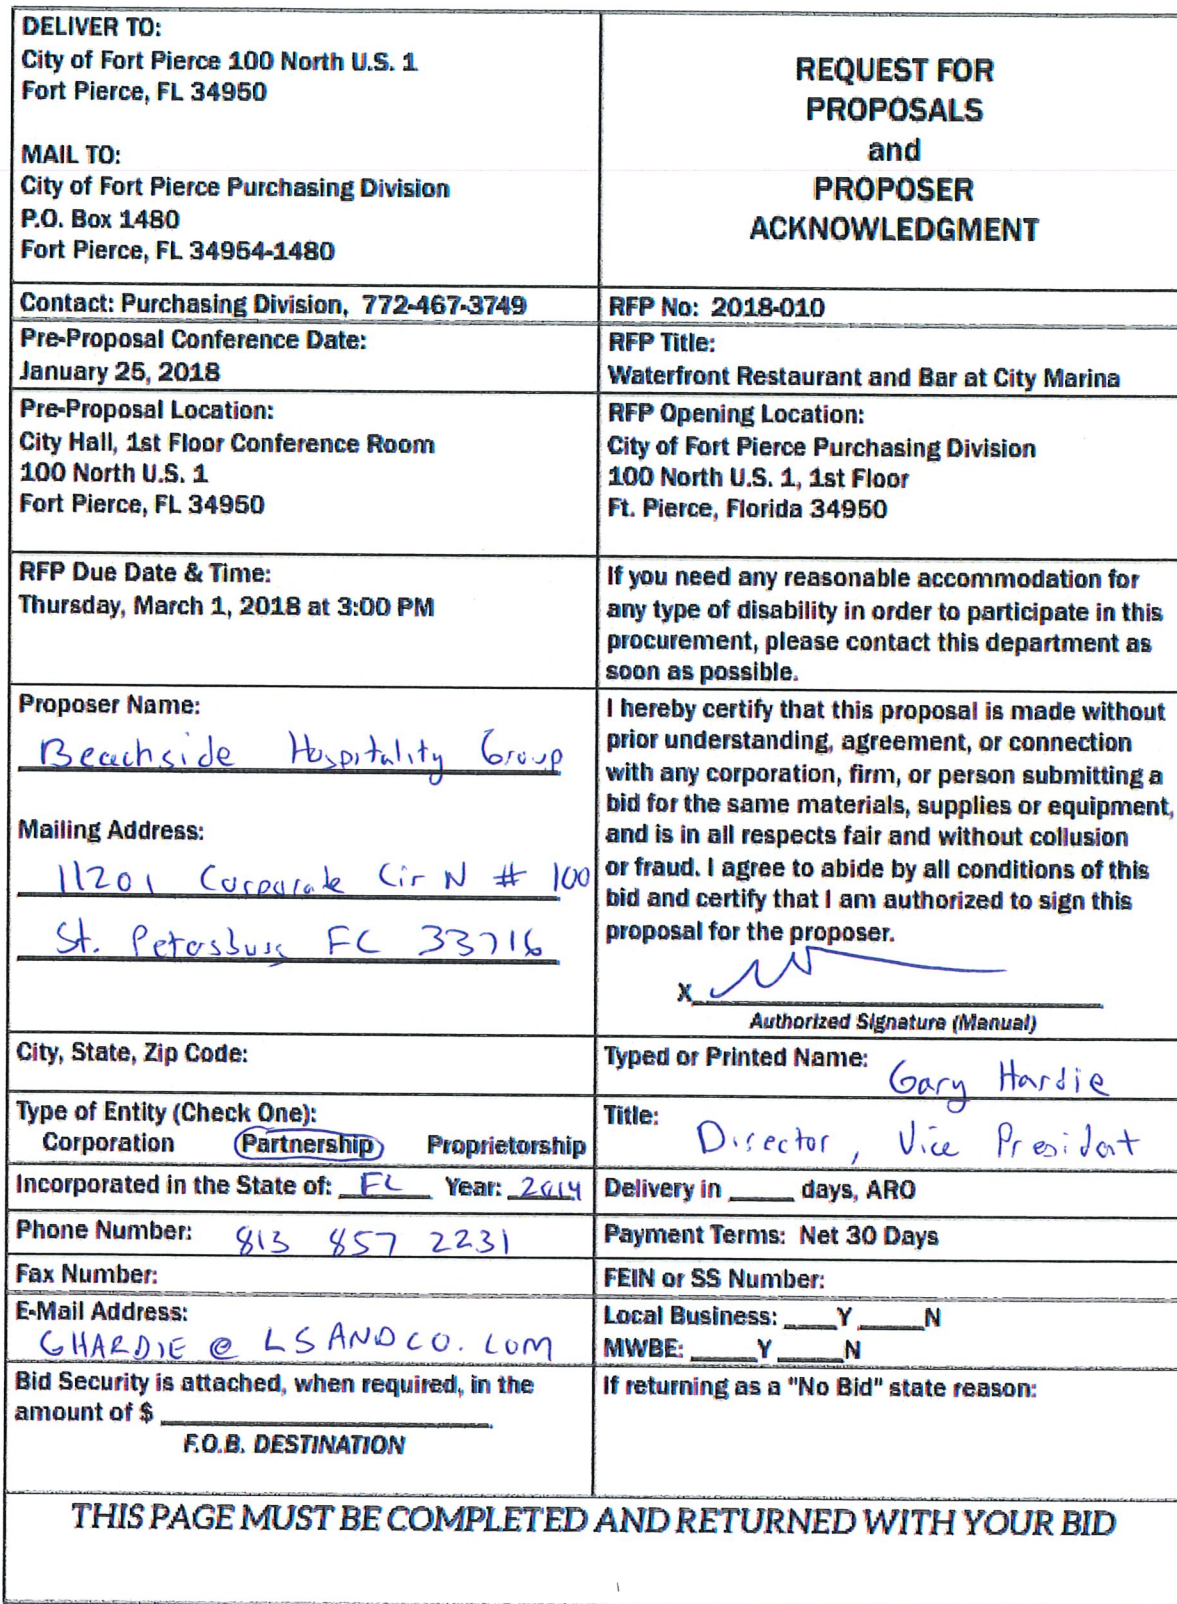 DELIVER TO:
City of Fort Pierce 100 North U.S. 1
Fort Pierce, FL 34950
MAIL TO:
City of Fort Pierce Purchasing Division
P.O. Box 1480
Fort Pierce, FL 34954-1480
REQUEST FOR
PROPOSALS
and
PROPOSER
ACKNOWLEDGMENT
Contact: Purchasing Division, 772-467-3749
RFP No: 2018-010
Pre-Proposal Conference Date:
January 25, 2018
RFP Title:
Waterfront Restaurant and Bar at City Marina
Pre-Proposal Location:
City Hall, 1st Floor Conference Room
100 North U.S. 1
Fort Pierce, FL 34950
RFP Opening Location:
City of Fort Pierce Purchasing Division
100 North U.S. 1, 1st Floor
Ft. Pierce, Florida 34950
RFP Due Date & Time:
Thursday, March 1, 2018 at 3:00 PM
If you need any reasonable accommodation for
any type of disability in order to participate in this
procurement, please contact this department as
soon as possible.
Proposer Name:
Beachside Hospitality Group
Mailing Address:
11201 Corporate Cir N # 100
St. Petersburg FL 33716
I hereby certify that this proposal is made without
prior understanding, agreement, or connection
with any corporation, firm, or person submitting a
bid for the same materials, supplies or equipment,
and is in all respects fair and without collusion
or fraud. I agree to abide by all conditions of this
bid and certify that I am authorized to sign this
proposal for the proposer.
X
Authorized Signature (Manual)
City, State, Zip Code:
Typed or Printed Name: Gary Hardie
Type of Entity (Check One):
Corporation Partnership Proprietorship
Title: Director, Vice President
Incorporated in the State of: FL Year: 2014
Delivery in _____ days, ARO
Phone Number: 813 857 2231
Payment Terms: Net 30 Days
Fax Number:
FEIN or SS Number:
E-Mail Address:
GHARDIE @ LSANDCO.COM
Local Business: ____Y _____N
MWBE: _____Y _____N
Bid Security is attached, when required, in the
amount of $ ____________________
F.O.B. DESTINATION
If returning as a "No Bid" state reason:
THIS PAGE MUST BE COMPLETED AND RETURNED WITH YOUR BID
1